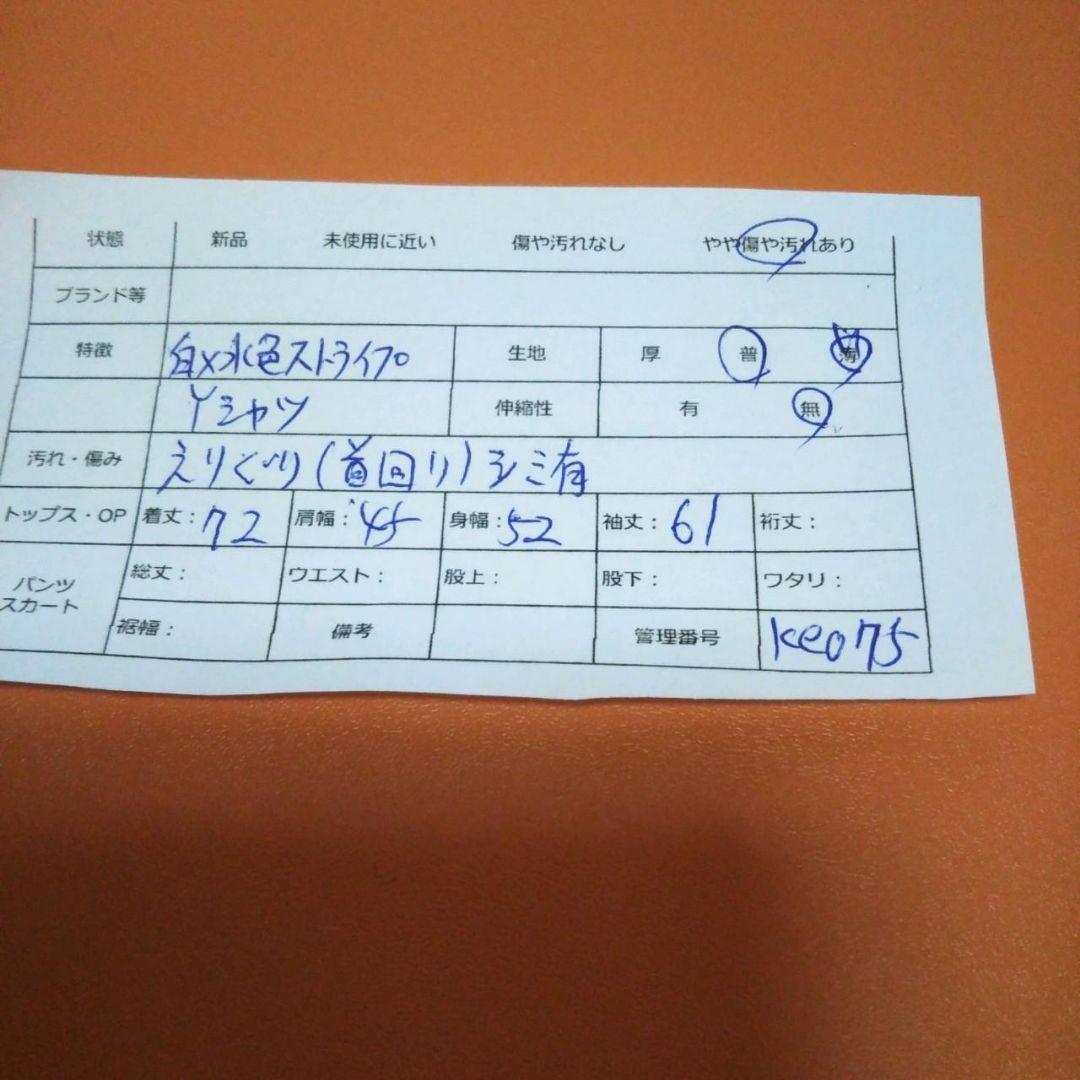 状態 新品 未使用に近い 傷や汚れなし やや傷や汚れあり
ブランド等
特徴 白×水色ストライプ 生地 厚 普 薄
Yシャツ 伸縮性 有 無
汚れ・傷み えりぐり(首回り)シミ有
トップス・OP 着丈:72 肩幅:45 身幅:52 袖丈:61 裄丈:
パンツ スカート 総丈: ウエスト: 股上: 股下: ワタリ:
裾幅: 備考 管理番号 ke075